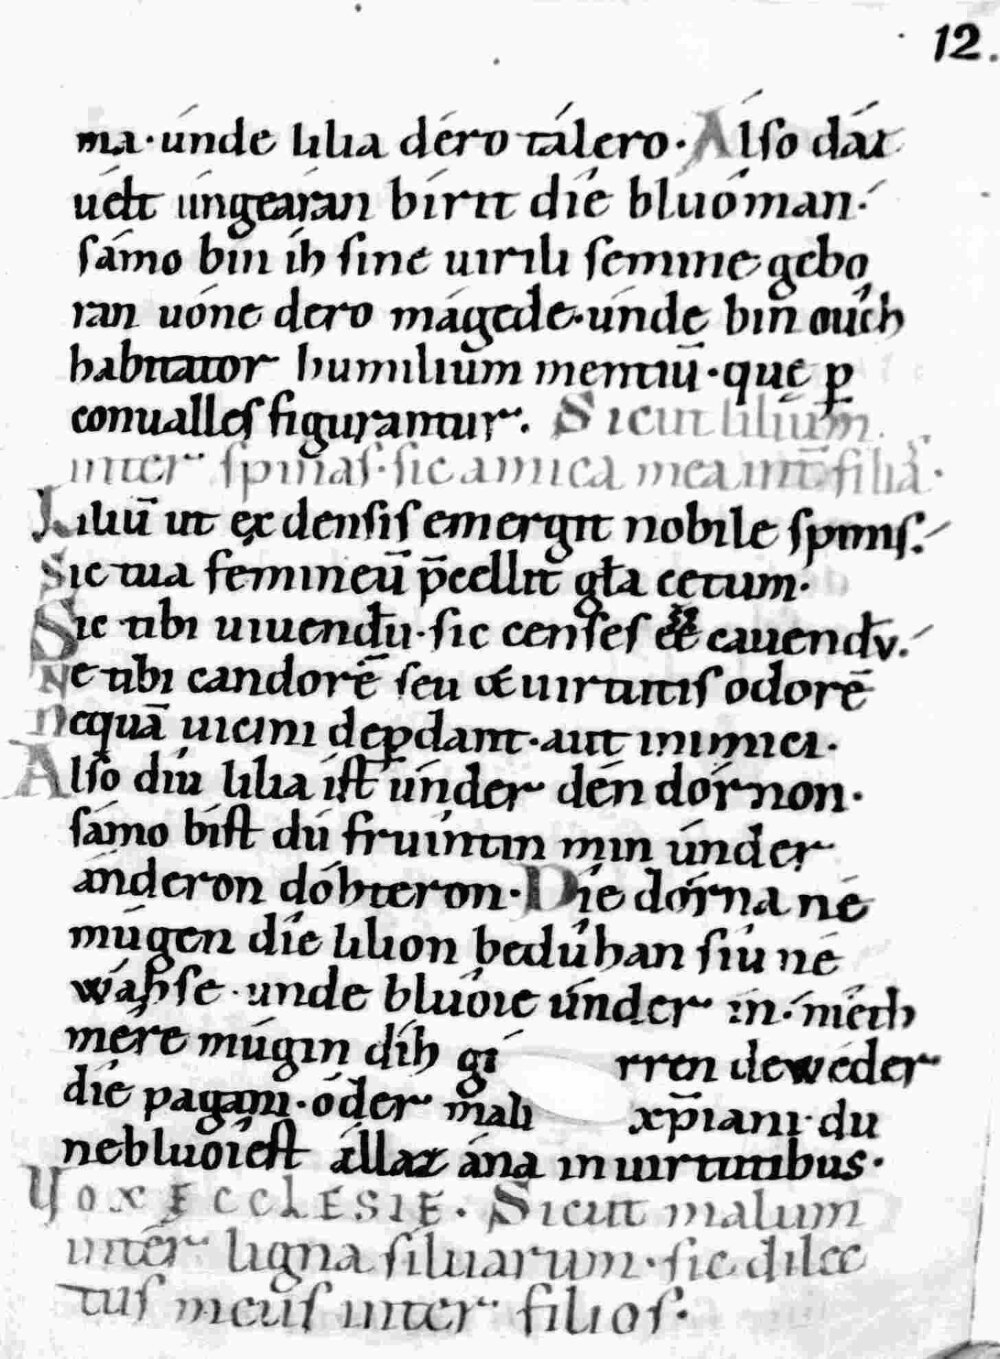 12.
ma· únde lilia déro tálero· Álso dáz
uélt úngearan bírit díe bluóman·
sámo bín íh sine uirili semine gebo
ran uóne dero mágede· únde bín oúch
habitator humilium mentiū· quę ꝑ
conualles figurantur. Sicut lilium
inter spinas· sic amica mea int̄ filias·
Liliū ut ex densis emergit nobile spinis.
Sic tua femineū p̄cellit gl̄a cętum·
Sic tibi uiuendū· sic censes eē cauendū.
Ne tibi candorē seu uirtutis odorē
nequā uicini deꝑdant· aut inimici·
Álso díu lilia íst únder dén dórnon·
sámo bíst dú fruíntin mín únder
ánderon dóhteron· Díe dórna né
múgen díe lilion bedúhan síu né
wáhse· unde bluóie únder ín· níeth
mére múgin díh gí rren dewéder
díe pagani· óder mali xp̄iani· du
nebluóiest állaz ána in uirtutibus·
Vox ECCLESIE. Sicut malum
inter ligna siluarum· sic dilec
tus meus inter filios·